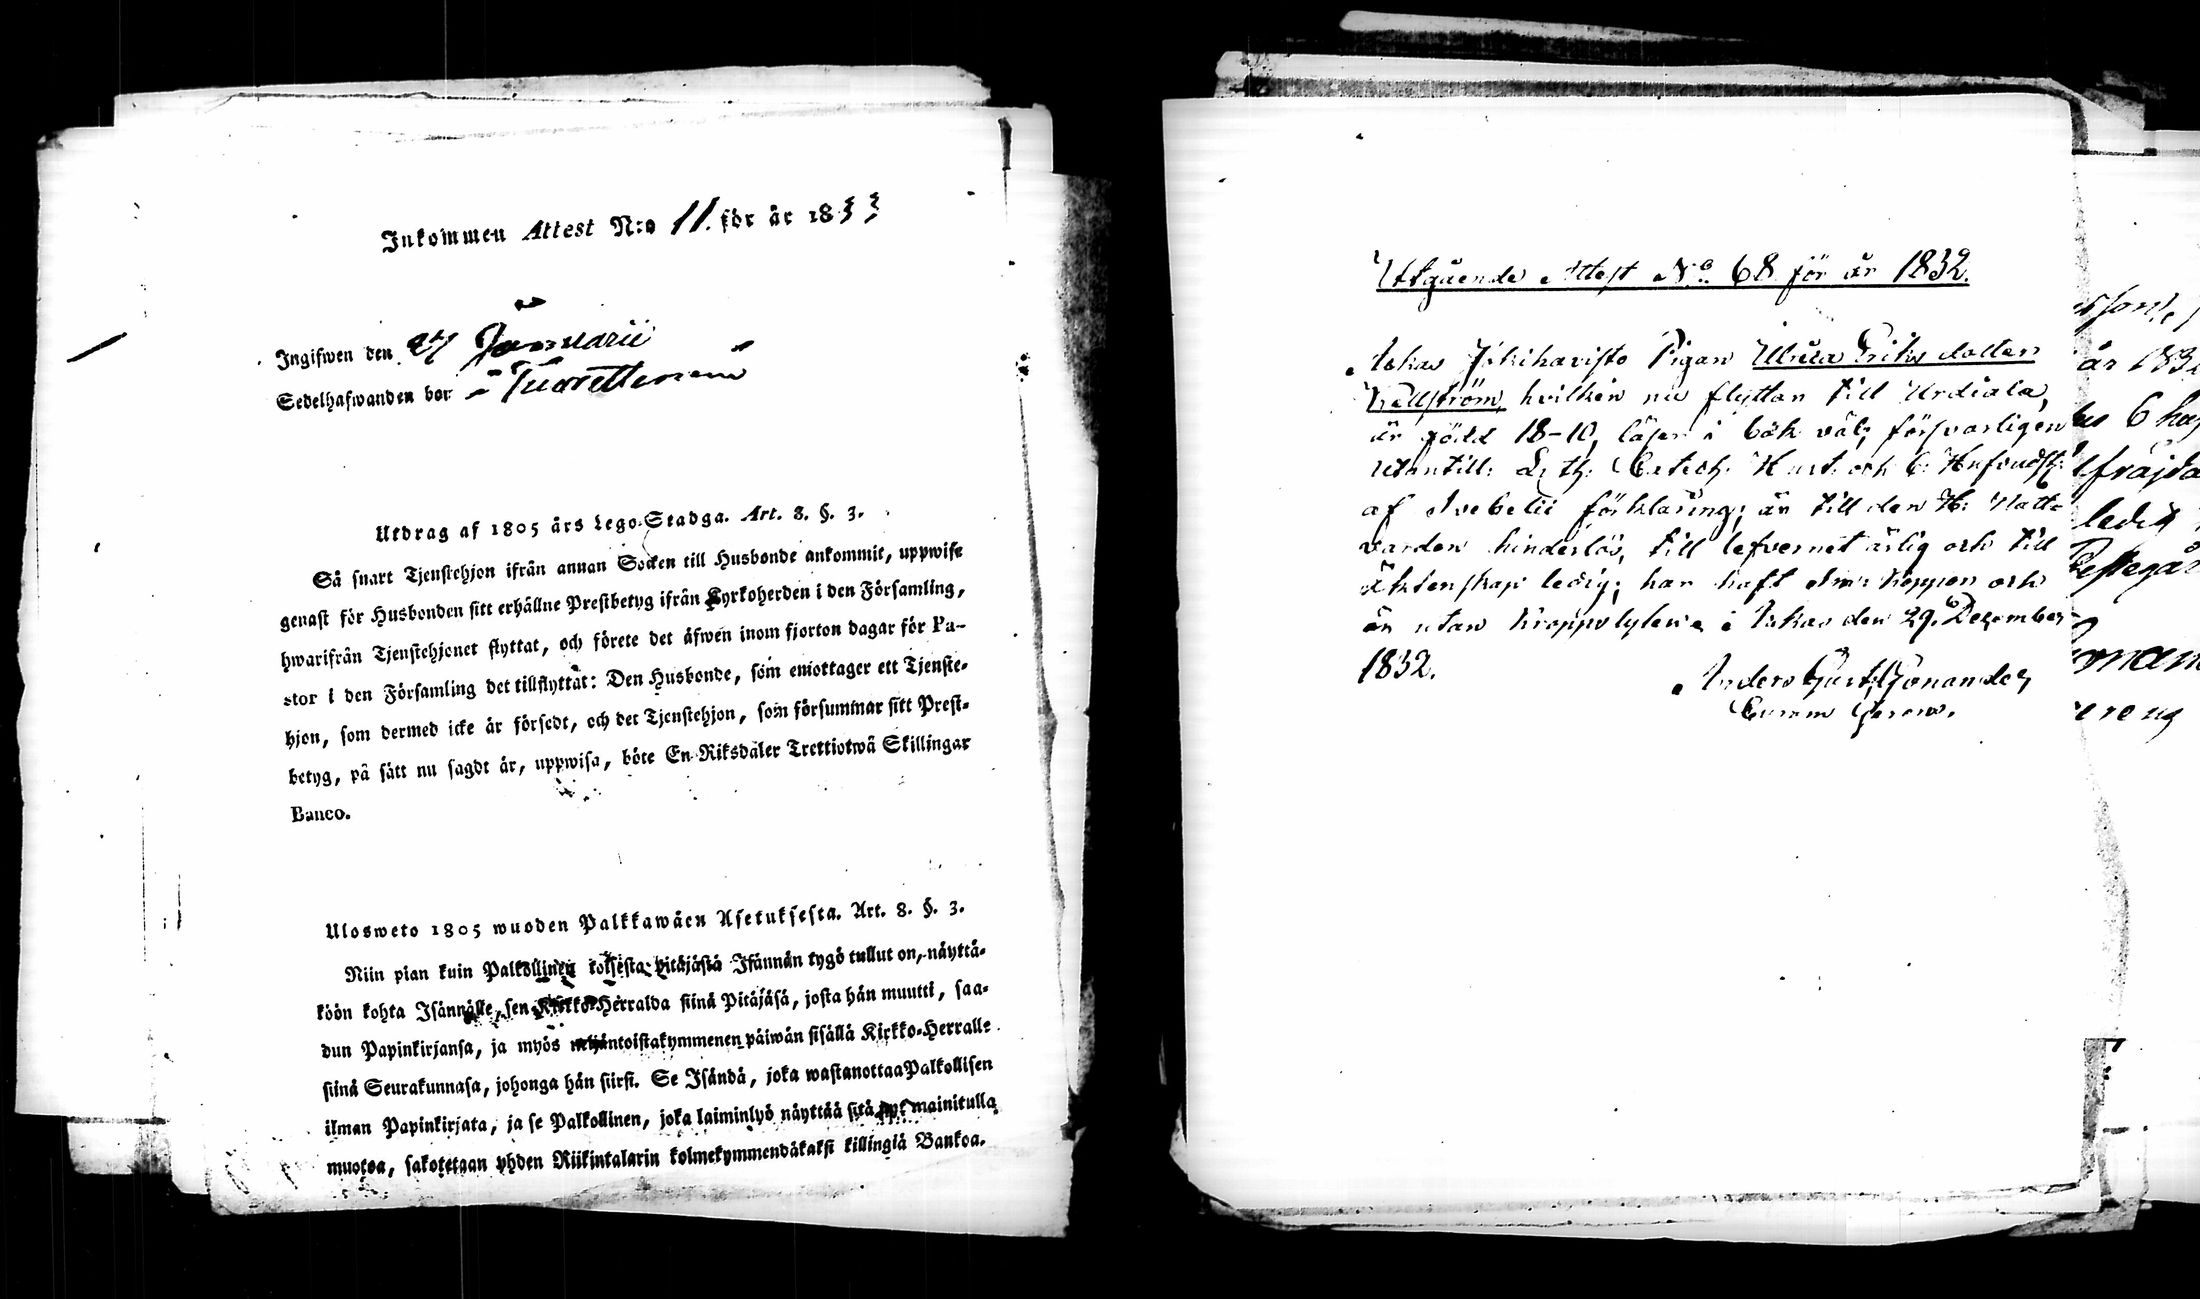 Inkommen Attest N:o 11. för år 1833
Ingifwen den 27 Januarii
Sedelhafwanden bor i
Utdrag af 1805 års Lego-Stadga. Art. 8. §. 3.
Så snart Tjenstehjon ifrån annan Socken till Husbonde ankommit, uppwise
genast för Husbonden sitt erhållne Prestbetyg ifrån Kyrkoherden i den Församling,
hwarifrån Tjenstehjonet flyttat, och förete det äfwen inom fjorton dagar för Pa-
stor i den Församling det tillflyttat: Den Husbonde, som emottager ett Tjenste-
hjon, som dermed icke är försedt, och det Tjenstehjon, som försummar sitt Prest-
betyg, på sätt nu sagdt är, uppwisa, böte En Riksdaler Trettiotwå Skillingar
Banco.
Ulosweto 1805 wuoden Palkkawäen Asetuksesta. Art. 8. §. 3.
Niin pian kuin Palkollinen toisesta pitäjästä Isännän tygö tullut on, näyttä-
köön kohta Isännälle, sen Kirkko-Herralda siinä Pitäjäsä, josta hän muutti, saa-
dun Papinkirjansa, ja myös neljäntoistakymmenen päiwän sisällä Kirkko-Herralle
siinä Seurakunnasa, johonga hän siirsi. Se Isändä, joka wastanottaa Palkollisen
ilman Papinkirjata, ja se Palkollinen, joka laiminlyö näyttää sitä mainitulla
muotoa, sakotetaan yhden Riikintalarin kolmekymmendäkaksi killingiä Bankoa.
Utgående Attest No. 68 för år 1832.
Jokihavisto Pigan Ulrica Eriks dotter
hvilken nu flyttar till Urdiala,
är född 18-10, läser i bok väl, försvarligen
utantill: Luth. Catech. Hust. och
af Svebelii förklaring; är till den H. Natt-
varden hinderlös, till lefvernet ärlig och till
äktenskap ledig; har haft koppor och
är utan kroppslyte i den 29. December
1832.
Anders Gust.
år 183
6
ledig